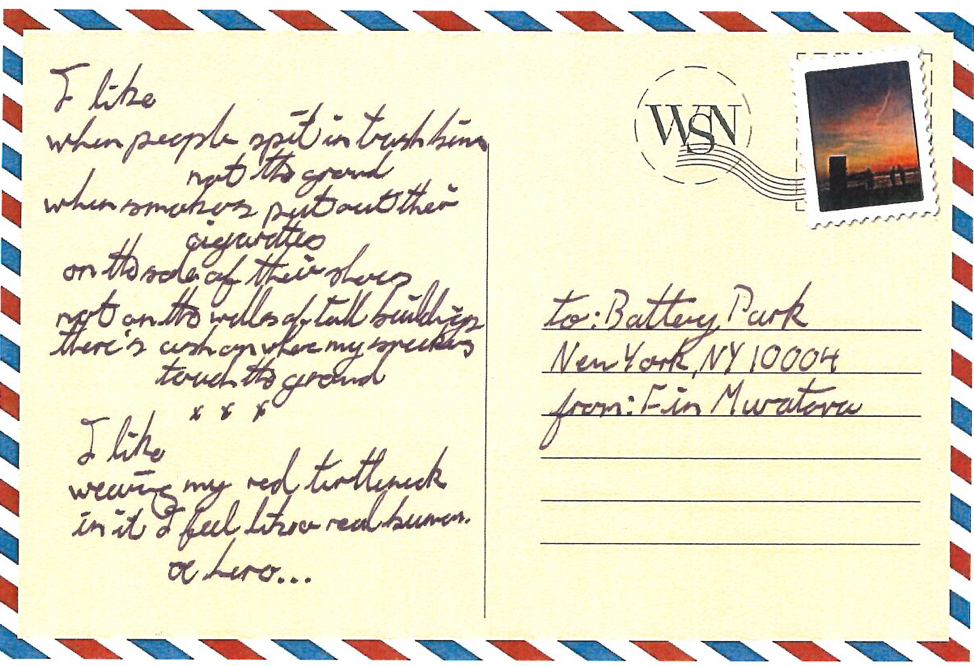 I like
when people spit in trash bins
not the ground
when smokers put out their
cigarettes
on the sole of their shoes
not on the walls of tall buildings
there's ash on where my sneakers
touch the ground
* * *
I like
wearing my red turtleneck
in it I feel like a real human.
a hero...
WSN
to: Battery Park
New York, NY 10004
from: Fin Muratova